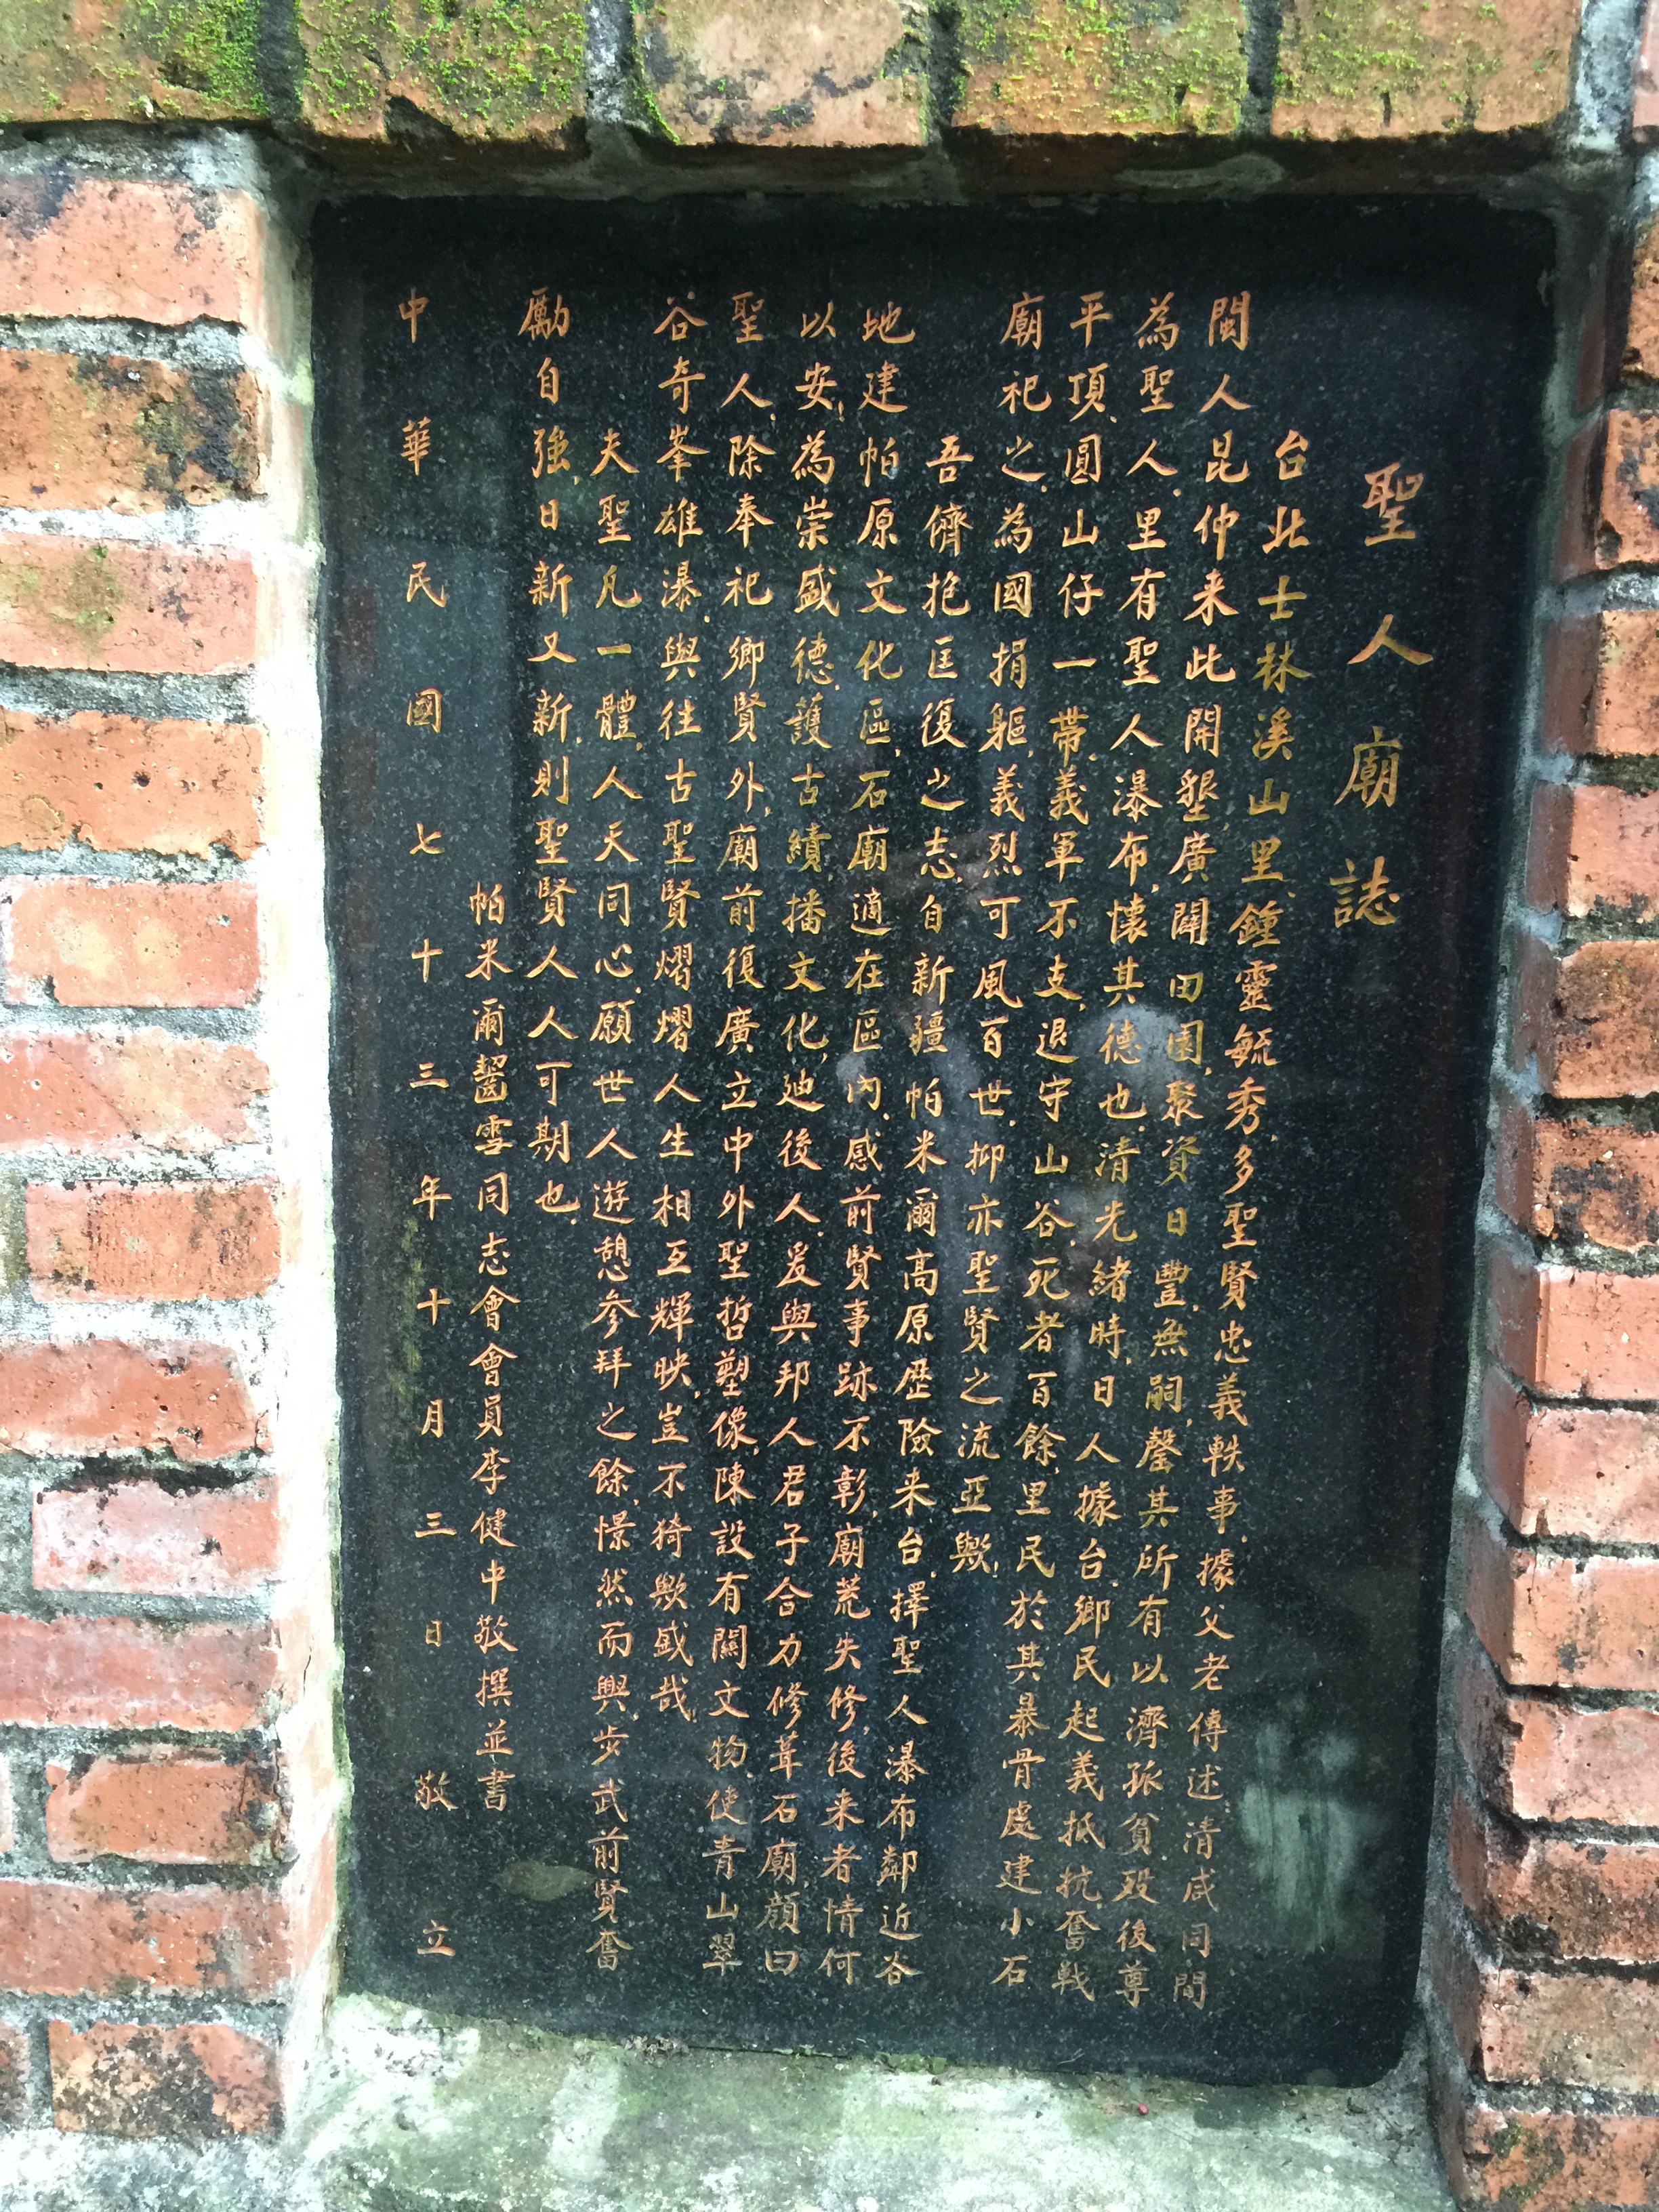 聖人廟誌
台北士林溪山里鍾靈毓秀多聖賢忠義軼事據父老傳述清咸同間
閩人昆仲来此開墾廣闢田園聚資日豐無嗣罄其所有以濟孤貧歿後尊
為聖人里有聖人瀑布懷其德也清光緒時日人據台鄉民起義抵抗奮戰
平頂圓山仔一帶義軍不支退守山谷死者百餘里民於其暴骨處建小石
廟祀之為國捐軀義烈可風百世抑亦聖賢之流亞歟
吾儕抱匡復之志自新疆帕米爾高原歷險来台擇聖人瀑布鄰近谷
地建帕原文化區石廟適在區內感前賢事跡不彰廟荒失修後来者情何
以安為崇盛德護古績播文化廸後人爰與邦人君子合力修葺石廟顏曰
聖人除奉祀鄉賢外廟前復廣立中外聖哲塑像陳設有關文物使青山翠
谷奇峯雄瀑與往古聖賢熠熠人生相互輝映豈不猗歟盛哉
夫聖凡一體人天同心願世人遊憩參拜之餘憬然而興步武前賢奮
勵自強日新又新則聖賢人人可期也
帕米爾齧雪同志會會員李健中敬撰並書
中華民國七十三年十月三日敬立